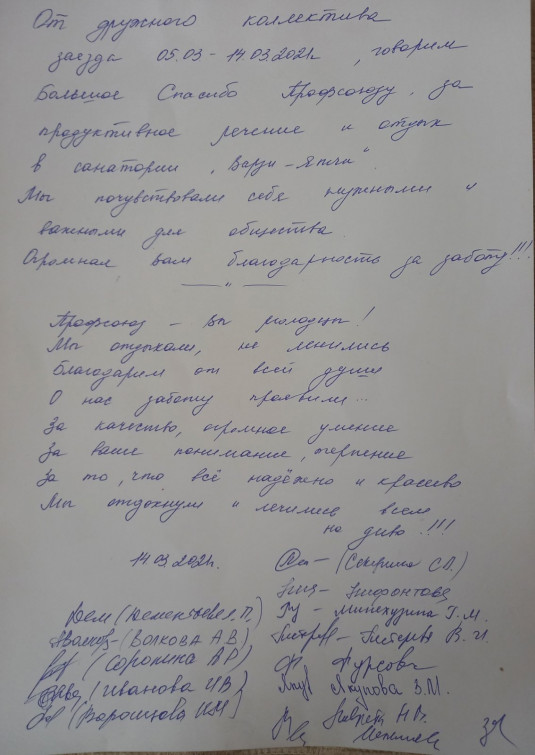 От дружного коллектива
заезда 05.03 - 14.03.2021г, говорим
Большое Спасибо Профсоюзу, за
продуктивное лечение и отдых
в санатории „Варзи-Ятчи“
Мы почувствовали себя нужными и
важными для общества.
Огромная вам благодарность за заботу!!!
— " —
Профсоюз - вы молодцы!
Мы отдыхали, не ленились
Благодарим от всей души
О нас заботу проявили...
За качество, огромное умение
За ваше понимание, терпение
За то, что всё надёжно и красиво
Мы отдохнули и лечились всем
на диво!!!
14.03.2021г.
(Секерина С.Л.)
(Дементьева Л.П.)
Г.М.
(Волкова А В)
В. И.
(Сорокина АР)
Фурсова
(Иванова ИВ)
Якупова З.М.